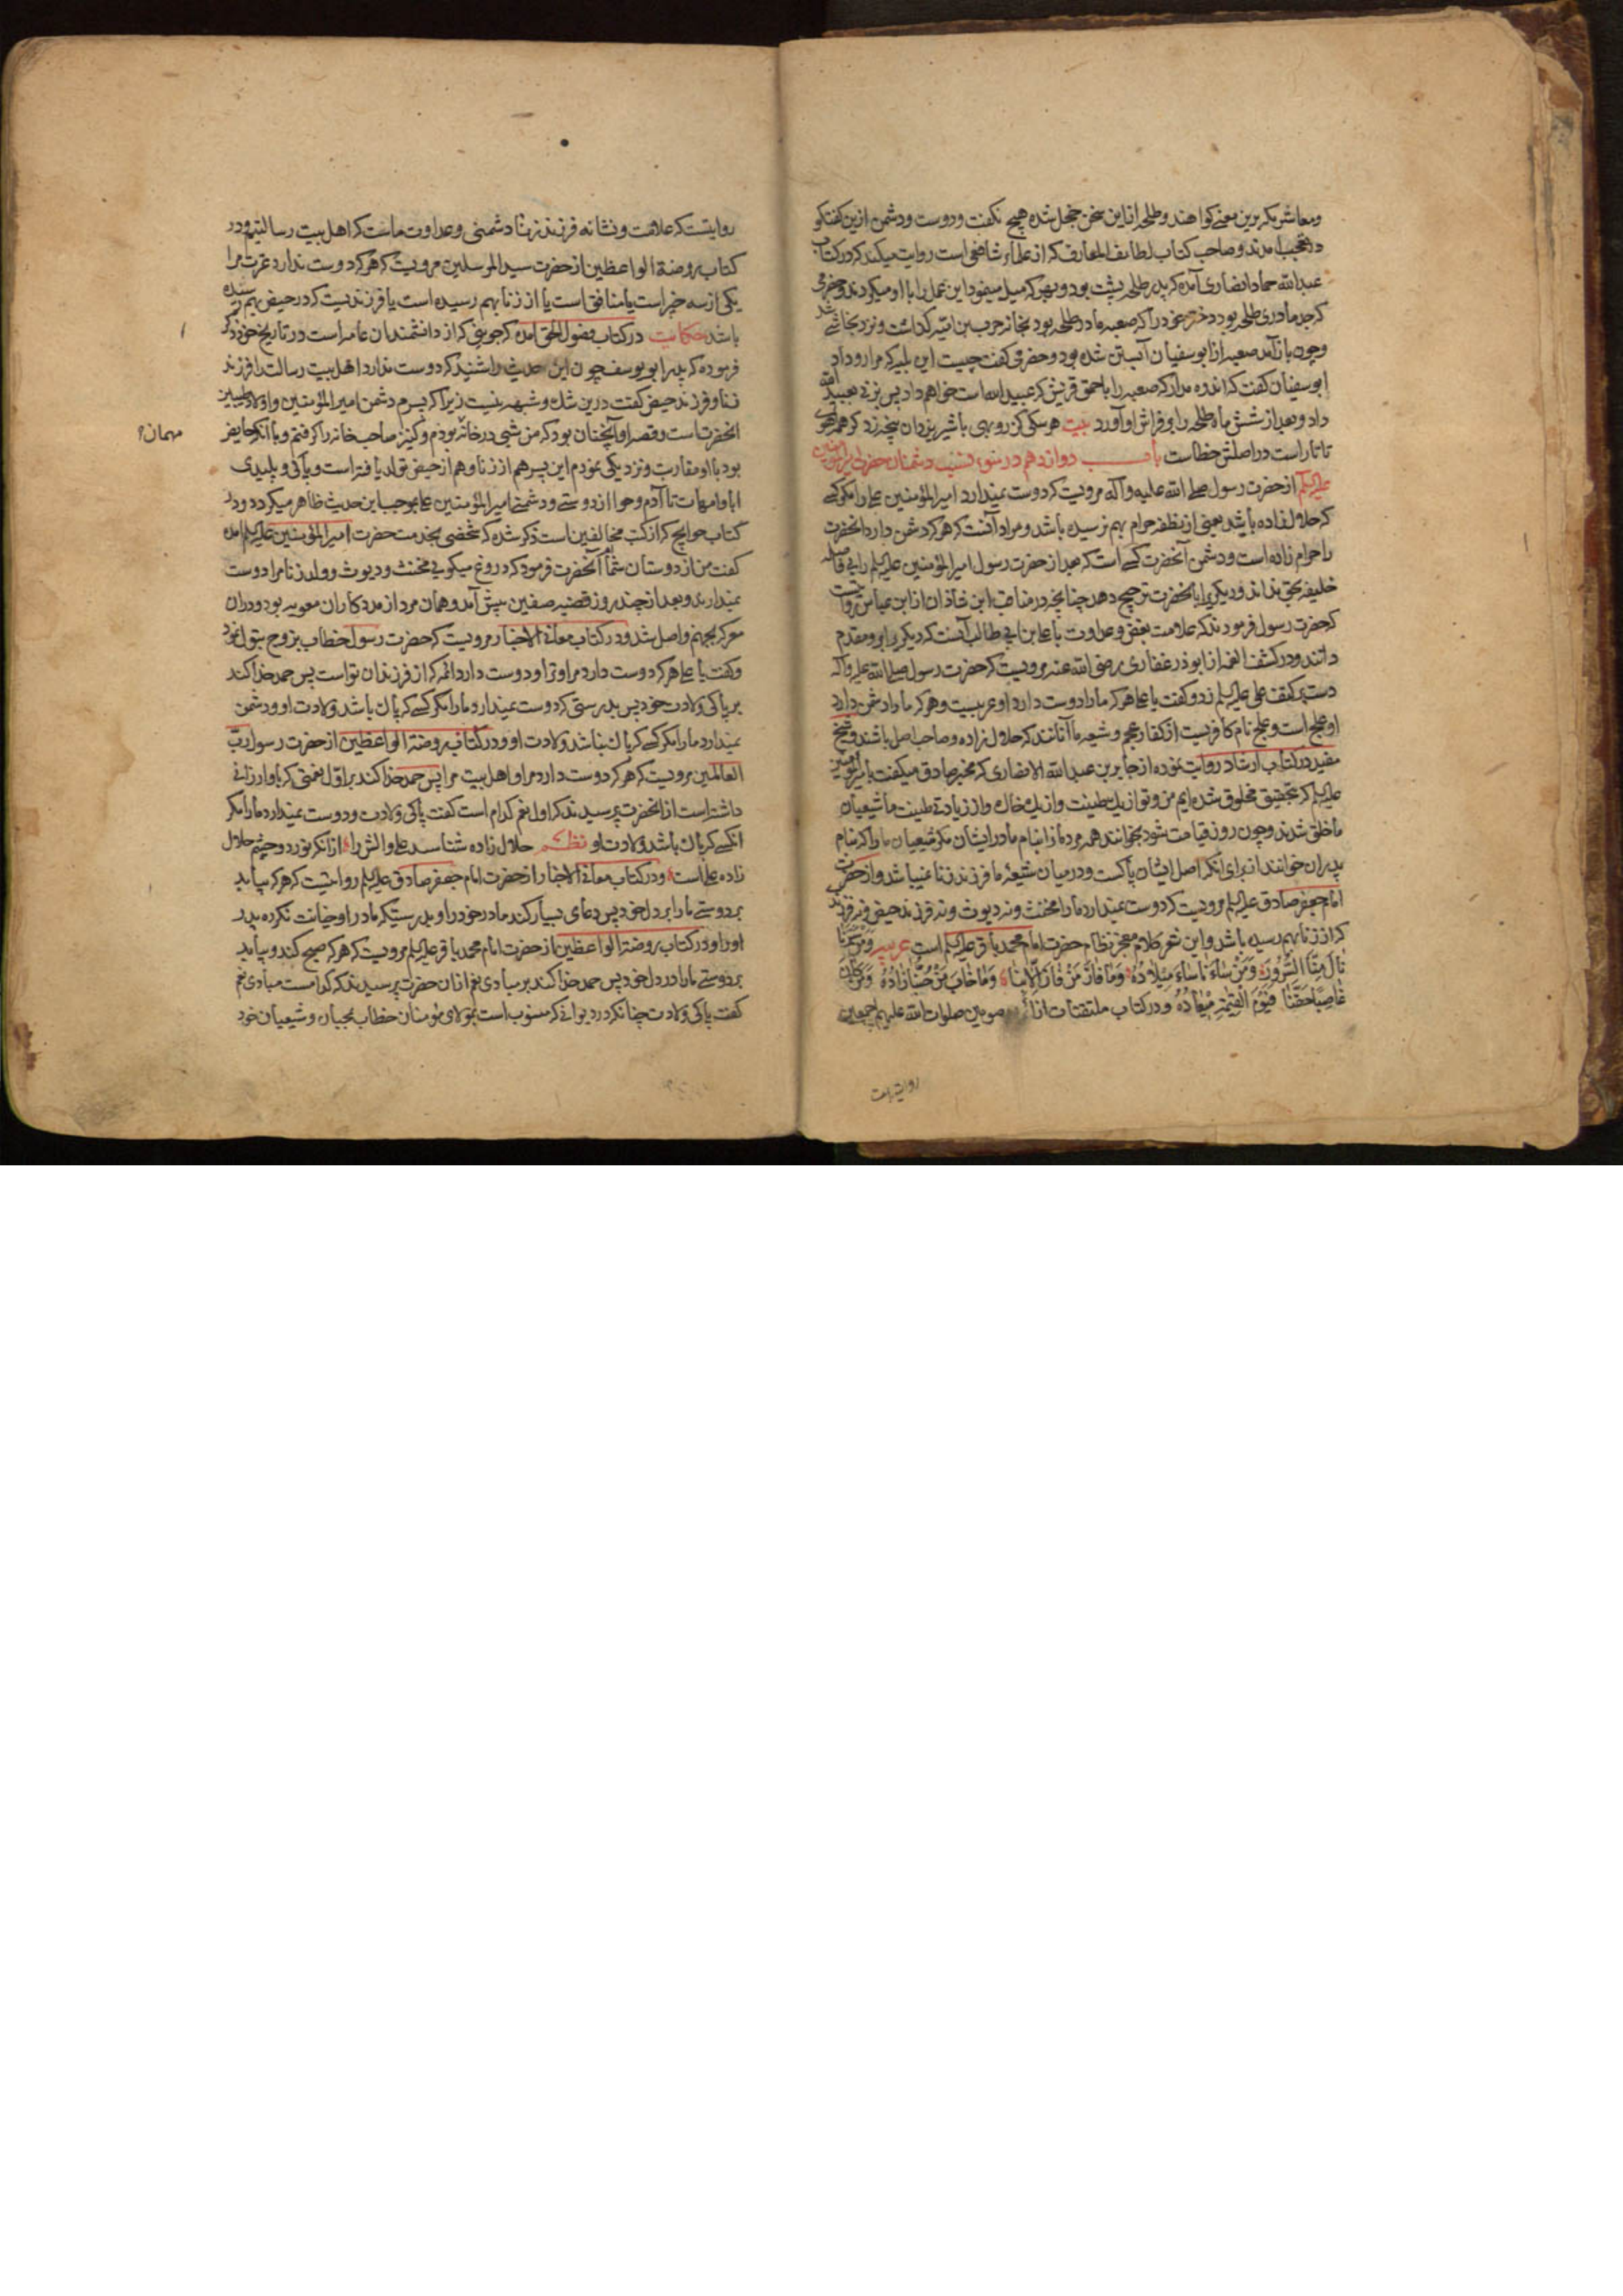 ومعاشر بکر برین معنے کواهند وطلحه ازین سخن خجل شده هیچ نکفت ودوست ودشمن ازین کفتکو
در تعجب امدند وصاحب کتاب لطایف المعارف که از علماء شافعی است روایت میکند که در کتاب
عبدالله حماد انصاری آمده که پدر طلحه بود وبهر که میل مینمود این عمل را با او میکردند وحضرمی
که جد مادری طلحه بود دختر خود را که صعبه مادر طلحه بود بخانه حرب بن امیه کذاشت ونزد نجاشے شد
وچون باز آمد صعبه از ابوسفیان آبستن شده بود وحضرمی کفت چیست این بلیه که مرا رو داد
ابوسفیان کفت که اندوه مدار که صعبه را باحمق قریش که عبیدالله است خواهم داد پس بزنے بعبیدالله
داد وبعد از شش ماه طلحه را بر فراش او آورد بیت هر سکی کز روبهی با شیر یزدان پنجه زد کر همه آهوی
تاتار است در اصلش خطاست باب دوازدهم در سوء نسب دشمنان حضرت امیرالمومنین
علیه السلم از حضرت رسول صلے الله علیه وآله مرویست که دوست نمیدارد امیرالمؤمنین علی را مکر کسے
که حلال زاده باشد یعنی از نطفه حرام بهم نرسیده باشد ومراد آنست که هر که دشمن دارد انحضرت
را حرام زاده است ودشمن آنحضرت کسے است که بعد از حضرت رسول امیرالمؤمنین علیه السلم رابی فاصله
خلیفه بحق نداند ودیکریرا بانحضرت ترجیح دهد چنانچه در مناقب ابن شاذان از ابن عباس روایتست
که حضرت رسول فرمودند که علامت بغض وعداوت با علی بن ابی طالب آنست که دیکری برو مقدم
دانند ودر کشف الغمه از ابوذر غفاری رضی الله عنه مرویست که حضرت رسول صلے الله علیه وآله
دست بر کتف علی علیه السلم زد وکفت یا علی هر که ما را دوست دارد او عربیست وهر که ما را دشمن دارد
او علج است وعلج نام کافریست از کفار عجم وشیعه ما آنانند که حلال زاده وصاحب اصل باشند وشیخ
مفید در کتاب ارشاد روایت نموده از جابر بن عبدالله الانصاری که مخبر صادق میکفت با امیرالمومنین
علیه السلم که بتحقیق مخلوق شده ایم من وتو از یك طینت واز یك خاك واز زیادتے طینت ما شیعیان
ما خلق شدند وچون روز قیامت شود بخوانند همه مردمانرا بنام مادر ایشان مکر شیعیان مارا که بنام
پدران خوانند از برای انکه اصل ایشان پاکست ودر میان شیعهٔ ما فرزند زنا نمیباشد واز حضرت
امام جعفر صادق علیه السلم مرویست که دوست نمیدارد مارا مخنث ونه دیوث ونه فرزند حیض ونه فرزند
که از زنا بهم رسیده باشد واین شعر کلام معجز نظام حضرت امام محمد باقر علیه السلم است عربیه وَمَنْ سَرَّنَا
نَالَ مِنَّا السُّرُورَ وَمَنْ سَاءَنَا سَاءَ مِیلَادُهُ وَمَا فَازَ مَنْ فَازَ اِلَّا بِنَا وَمَا خَابَ مَنْ حُبُّنَا زَادُهُ وَمَنْ كَانَ
غَاصِبًا حَقَّنَا فَیَوْمَ الْقِیٰمَةِ مِیْعَادُهُ ودر کتاب ملتقتات از ائمه معصومین صلوات الله علیهم اجمعین
روایتست
روایتست که علامت ونشانه فرزند زنا دشمنی وعداوت ماست که اهل بیت رسالتیم ودر
کتاب روضة الواعظین از حضرت سید المرسلین مرویست که هر که دوست ندارد عترت مرا
یکی از سه چیز است یا منافق است یا از زنا بهم رسیده است یا فرزندیست که در حیض بهم رسیده
باشد حکایت در کتاب فصول الحق امده که جوینی که از دانشمندان عامه است در تاریخ خود ذکر
فرموده که پدر ابو یوسف چون این حدیث را شنید که دوست ندارد اهل بیت رسالت را فرزند
زنا وفرزند حیض کفت درین شك وشبهه نیست زیرا که پسرم دشمن امیرالمؤمنین واولاد طیبین
انحضرت است وقصه او آنچنان بود که من شبی در خانه بودم وکنیز صاحب خانه را کرفتم وبا آنکه حایض
مهمان؟
بود با او مقاربت ونزدیکی نمودم این پسر هم از زنا وهم از حیض تولد یافته است وپاکی وپلیدی
ابا وامهات تا آدم وحوا از دوستے ودشمنے امیرالمؤمنین علی بموجب این حدیث ظاهر میکردد ودر
کتاب حوایج که از کتب مخالفین است ذکر شده که شخصی بخدمت حضرت امیرالمؤمنین علیه السلم امده
کفت من از دوستان شماام آنحضرت فرمود که دروغ میکویی مخنث ودیوث وولد زنا مرا دوست
نمیدارند وبعد از چند روز قضیه صفین پیش آمد وهمان مرد از مددکاران معویه بود ودران
معرکه بجهنم واصل شد ودر کتاب معانے الاخبار مرویست که حضرت رسول خطاب بزوج بتول نمود
وکفت یا علی هر که دوست دارد مرا وترا ودوست دارد ائمه که از فرزندان تواست پس حمد خدا کند
بر پاکی ولادت خود پس بدرستی که دوست نمیدارد مارا مکر کسے که پاك باشد ولادت او ودشمن
نمیدارد مارا مکر کسے که پاك نباشد ولادت او ودر کتاب روضة الواعظین از حضرت رسول رب
العالمین مرویست که هر که دوست دارد مرا واهل بیت مرا پس حمد خدا کند بر اوّل نعمتی که باو ارزانے
داشته است از انحضرت پرسیدند که اول نعم کدام است کفت پاکی ولادت ودوست نمیدارد مارا مکر
انکسے که پاك باشد ولادت او نظم حلال زاده شناسد علی والش را از انکه نور دو چشم حلال
زاده علی است ودر کتاب معانے الاخبار از حضرت امام جعفر صادق علیه السلم روایتیست که هر که بیابد
بر دوستے مارا بر دل خود پس دعای بسیار کند مادر خود را وبدرستیکه مادر او خیانت نکرده پدر
اورا ودر کتاب روضة الواعظین از حضرت امام محمد باقر علیه السلم مرویست که هر که صبح کند وبیابد
بر دوستے مارا در دل خود پس حمد خدا کند بر مبادی نعم از ان حضرت پرسیدند که کدامست مبادی نعم
کفت پاکی ولادت چنانکه در دیوانے که منسوب است بمولای مؤمنان خطاب بمحبان وشیعیان خود